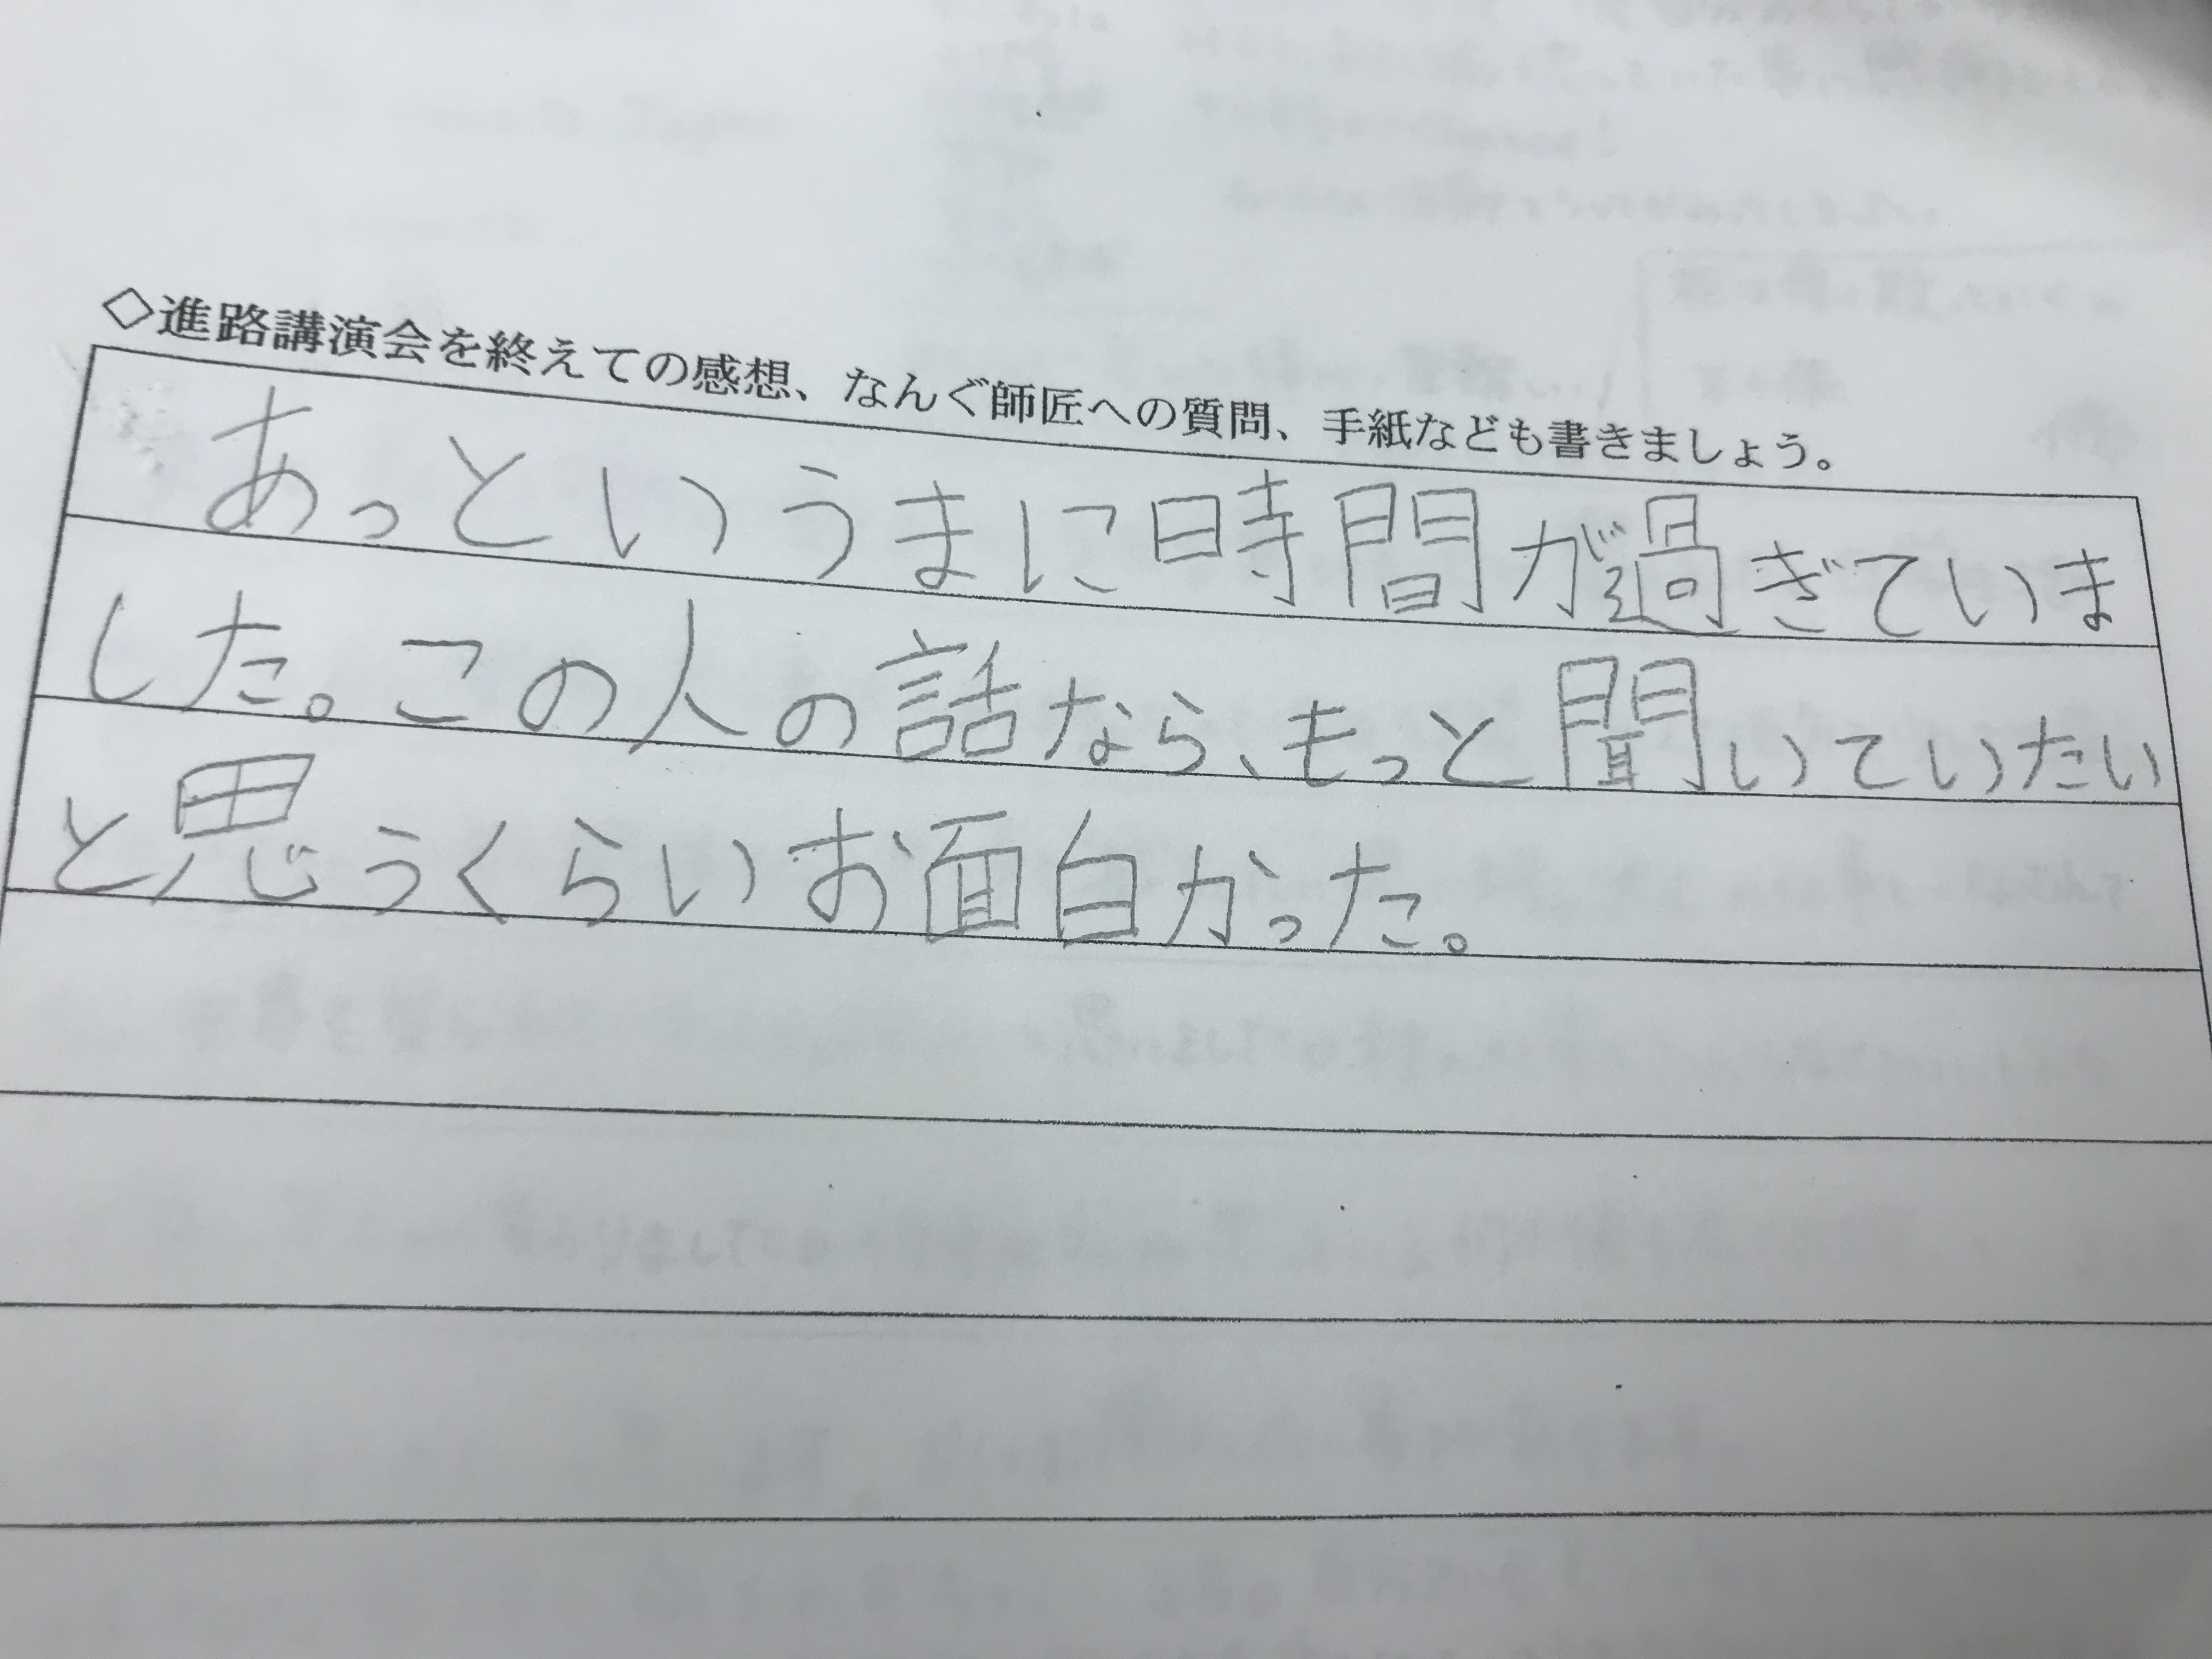 ◇進路講演会を終えての感想、なんぐ師匠への質問、手紙なども書きましょう。
あっというまに時間が過ぎていま
した。この人の話なら、もっと聞いていたい
と思うくらいお面白かった。